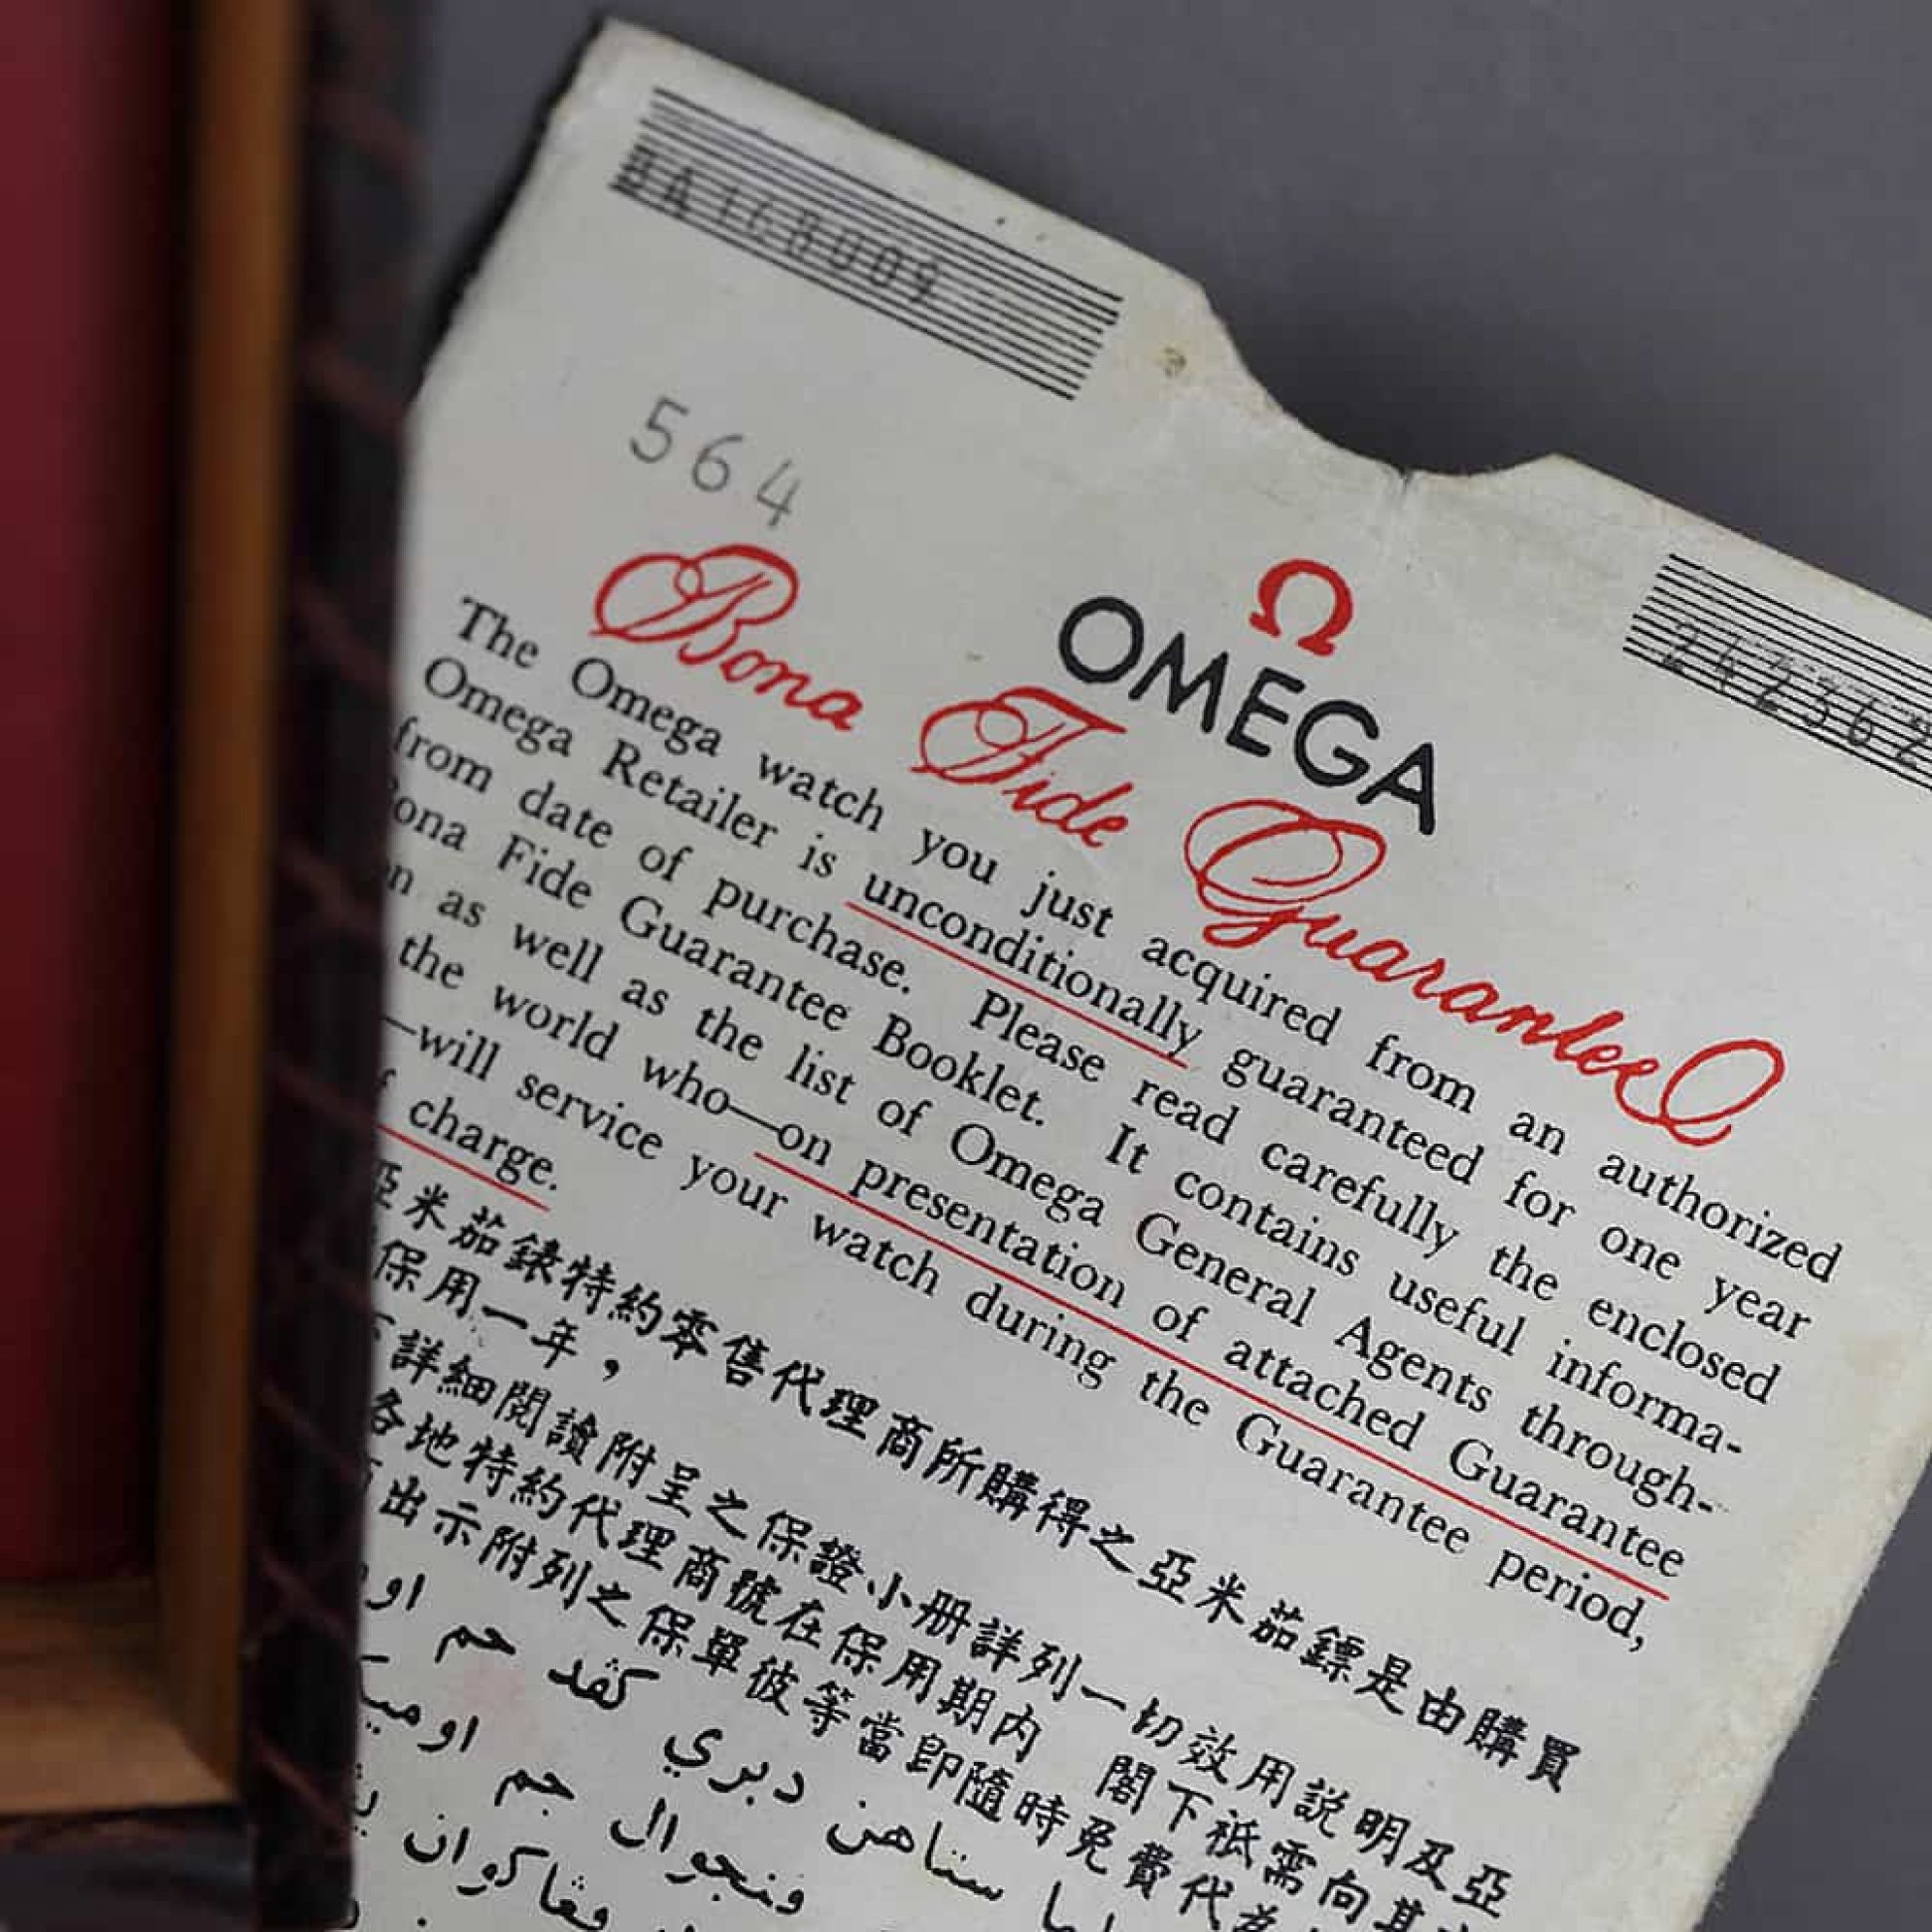 BA168009
564
Ω
OMEGA
Bona Fide Guarantee
The Omega watch you just acquired from an authorized
Omega Retailer is unconditionally guaranteed for one year
from date of purchase. Please read carefully the enclosed
ona Fide Guarantee Booklet. It contains useful informa-
n as well as the list of Omega General Agents through-
the world who—on presentation of attached Guarantee
—will service your watch during the Guarantee period,
f charge.
亞米茄錶特約零售代理商所購得之亞米茄鏢是由購買
保用一年，
詳細閱讀附呈之保證小册詳列一切效用説明及亞
各地特約代理商號在保用期内 閣下祗需向其
出示附列之保單彼等當即隨時免費代